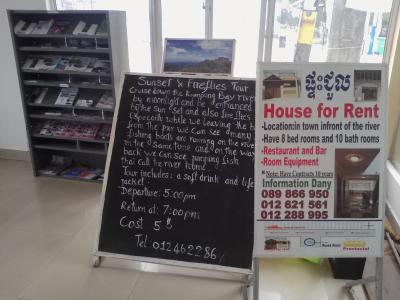 Sunset & Fireflies Tour
Cruise down the Kampong Bay river
by moonlight and be entranced
by the sun set and also fireflies
Especially while we leaving the
from the pier we can see many
fishing boats are running on the river
in the same time and on the way
back we can see jumping fish
that call the river home.
Tour includes: a soft drink and life
jacket.
Departure: 5:00pm
Return at: 7:00pm
Cost 5$
Tel: 012462286/
ផ្ទះជួល
House for Rent
-Location:in town infront of the river
-Have 8 bed rooms and 10 bath rooms
-Restaurant and Bar
-Room Equipment
* Note: Have Contracts 10 years
Information Dany
089 866 950
012 621 561
012 288 995